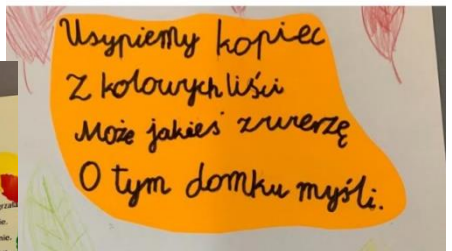 Usypiemy kopiec
Z kolowych liści
Może jakieś zwierzę
O tym domku myśli.